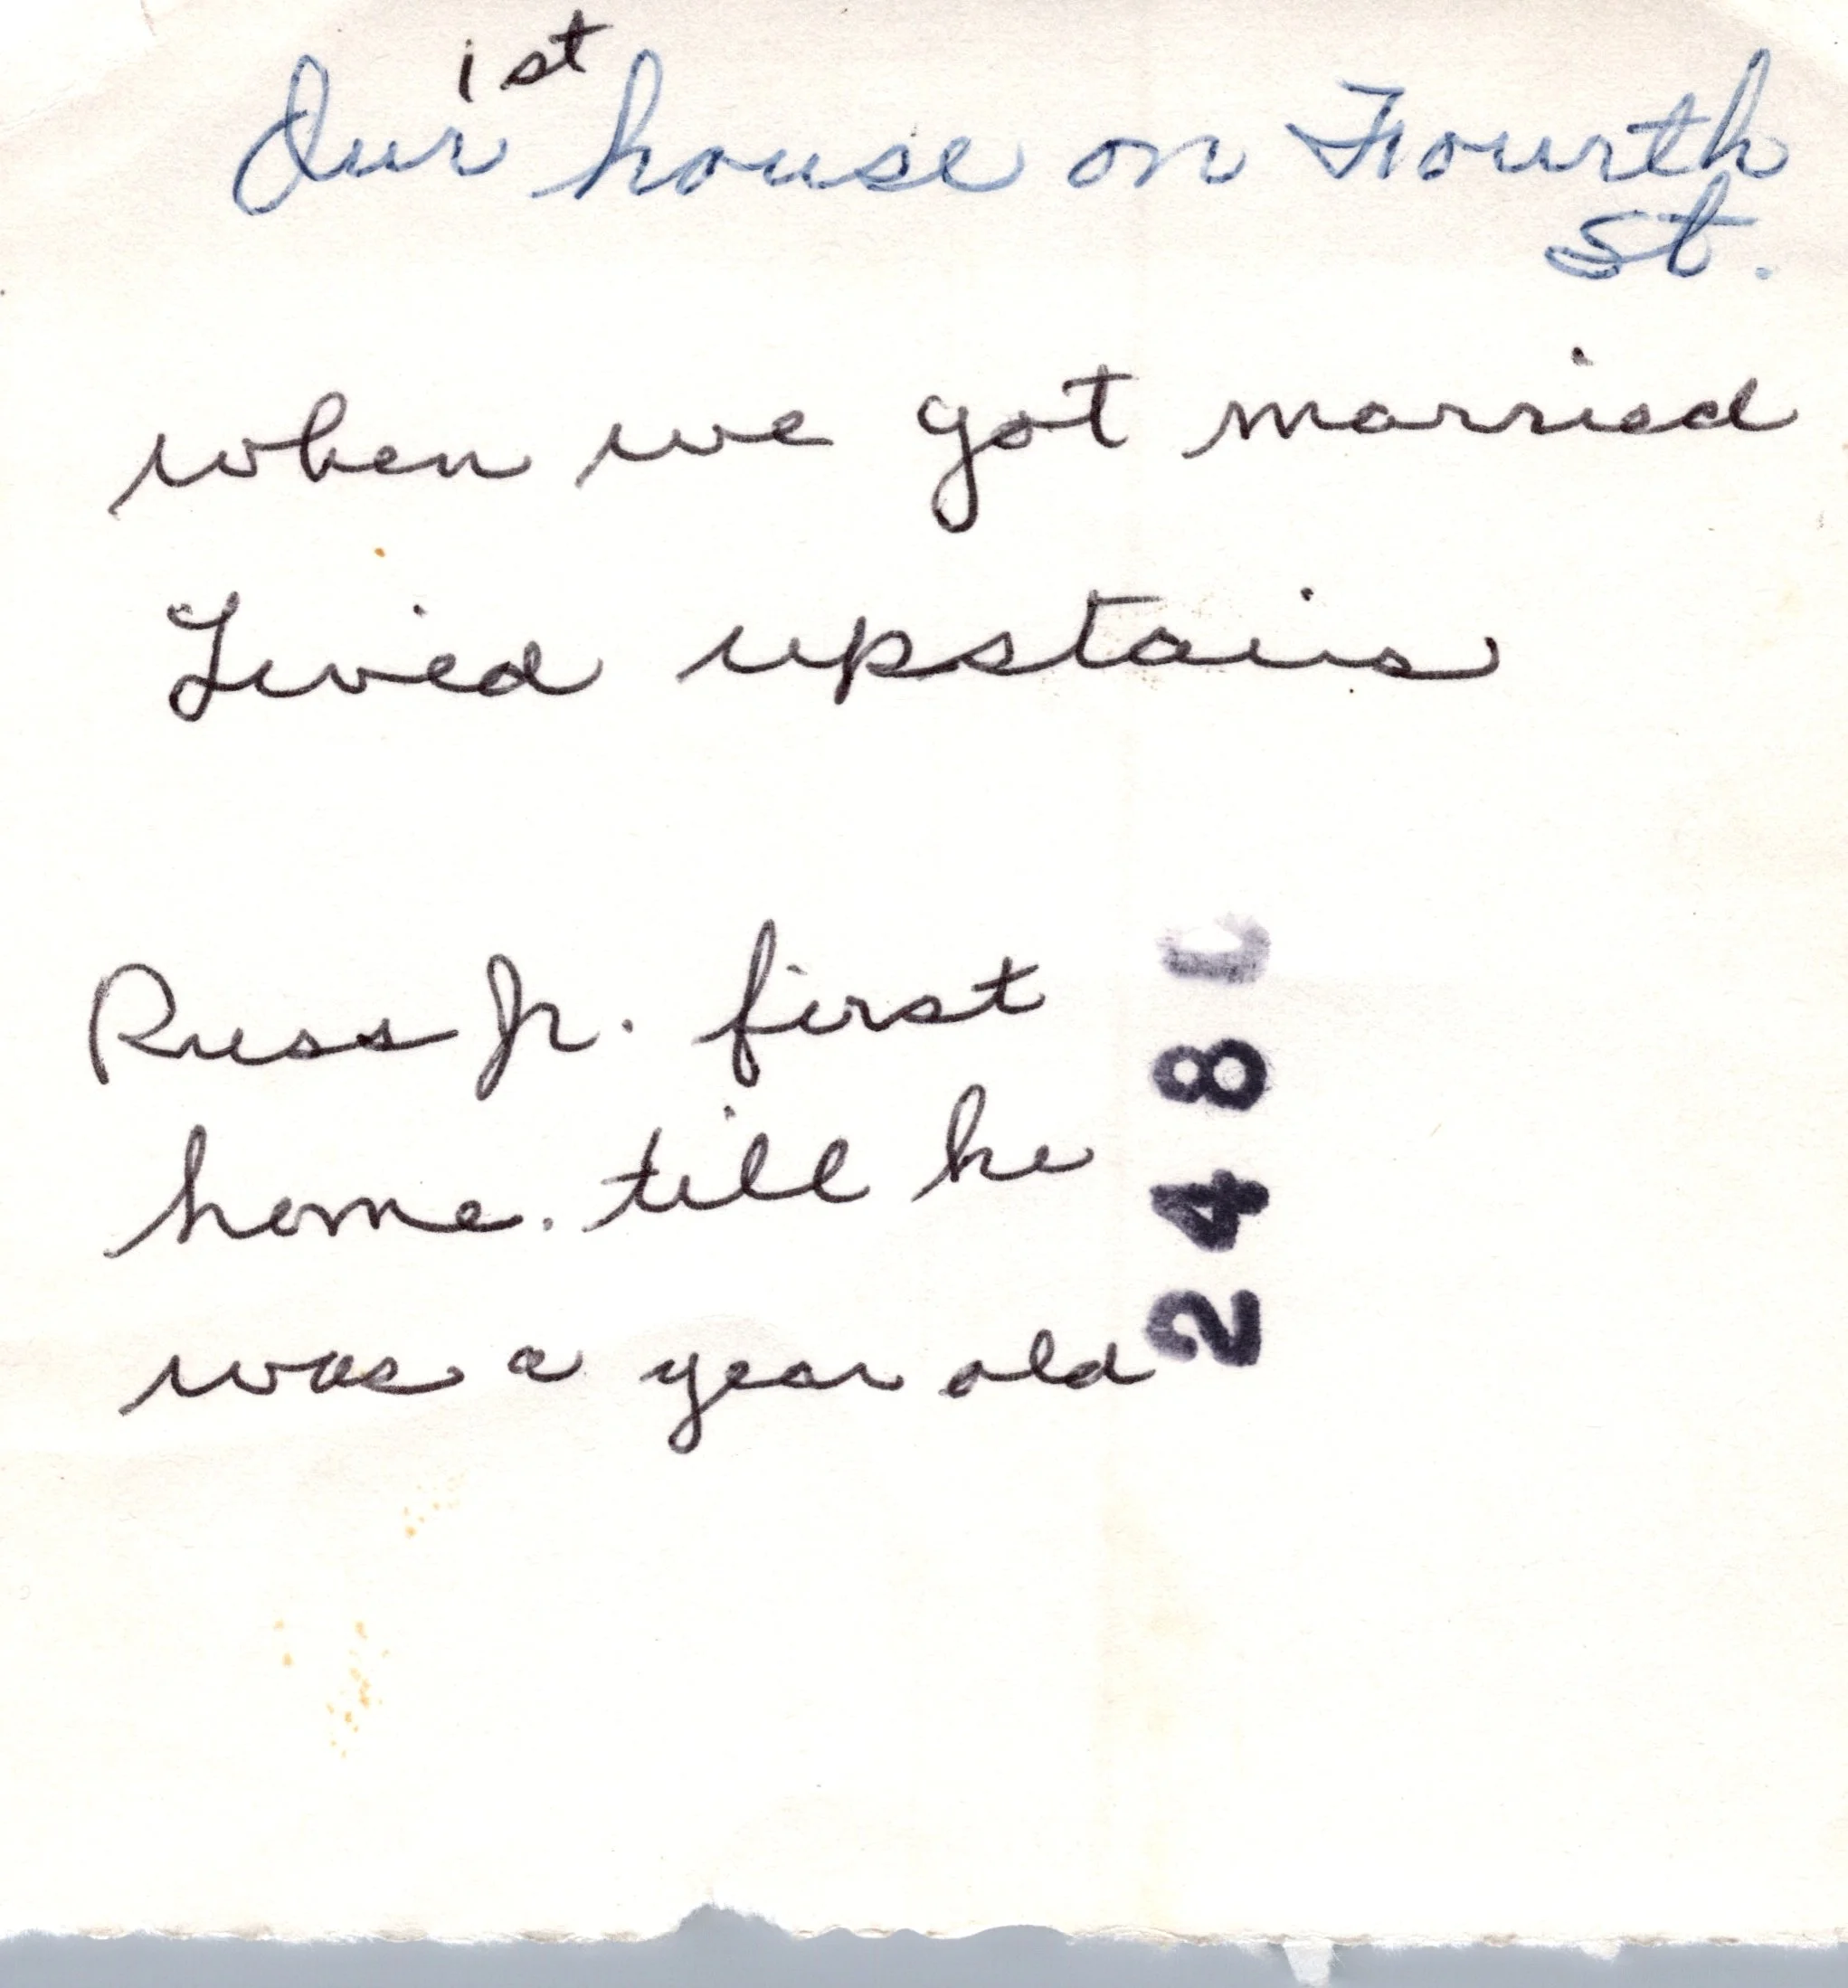 Our 1st house on Fourth
St.
when we got married
Lived upstairs
Russ Jr. first
home. till he
was a year old
248